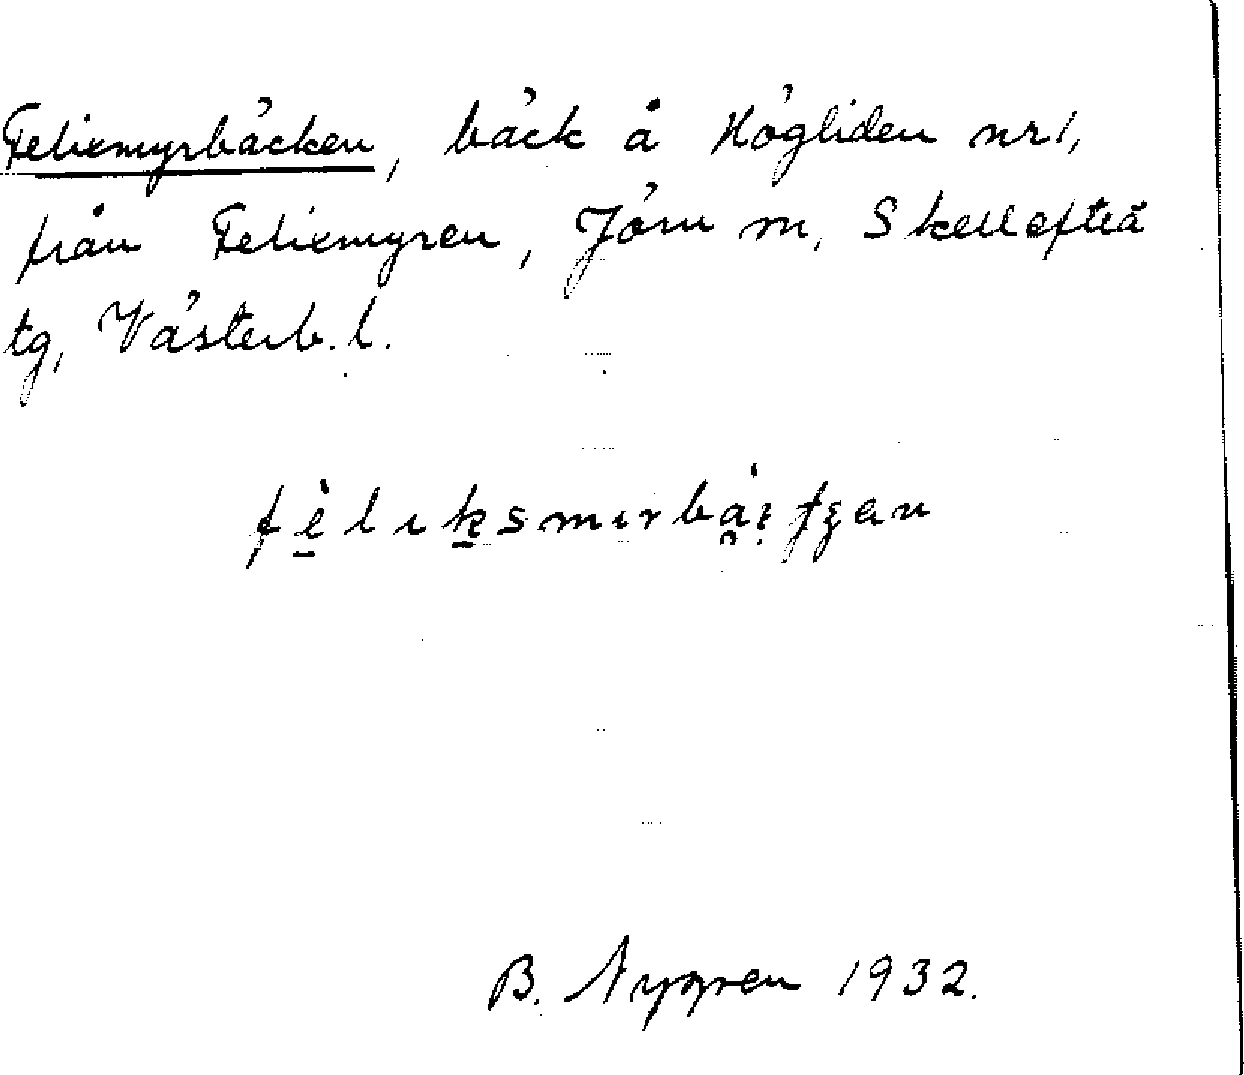 Felixmyrbäcken, bäck å Högliden nr 1,
från Felixmyren, Jörn sn, Skellefteå
tg, Västerb. l.
fèliksmırbä̀ıtʃʒan
B. Nygren 1932.